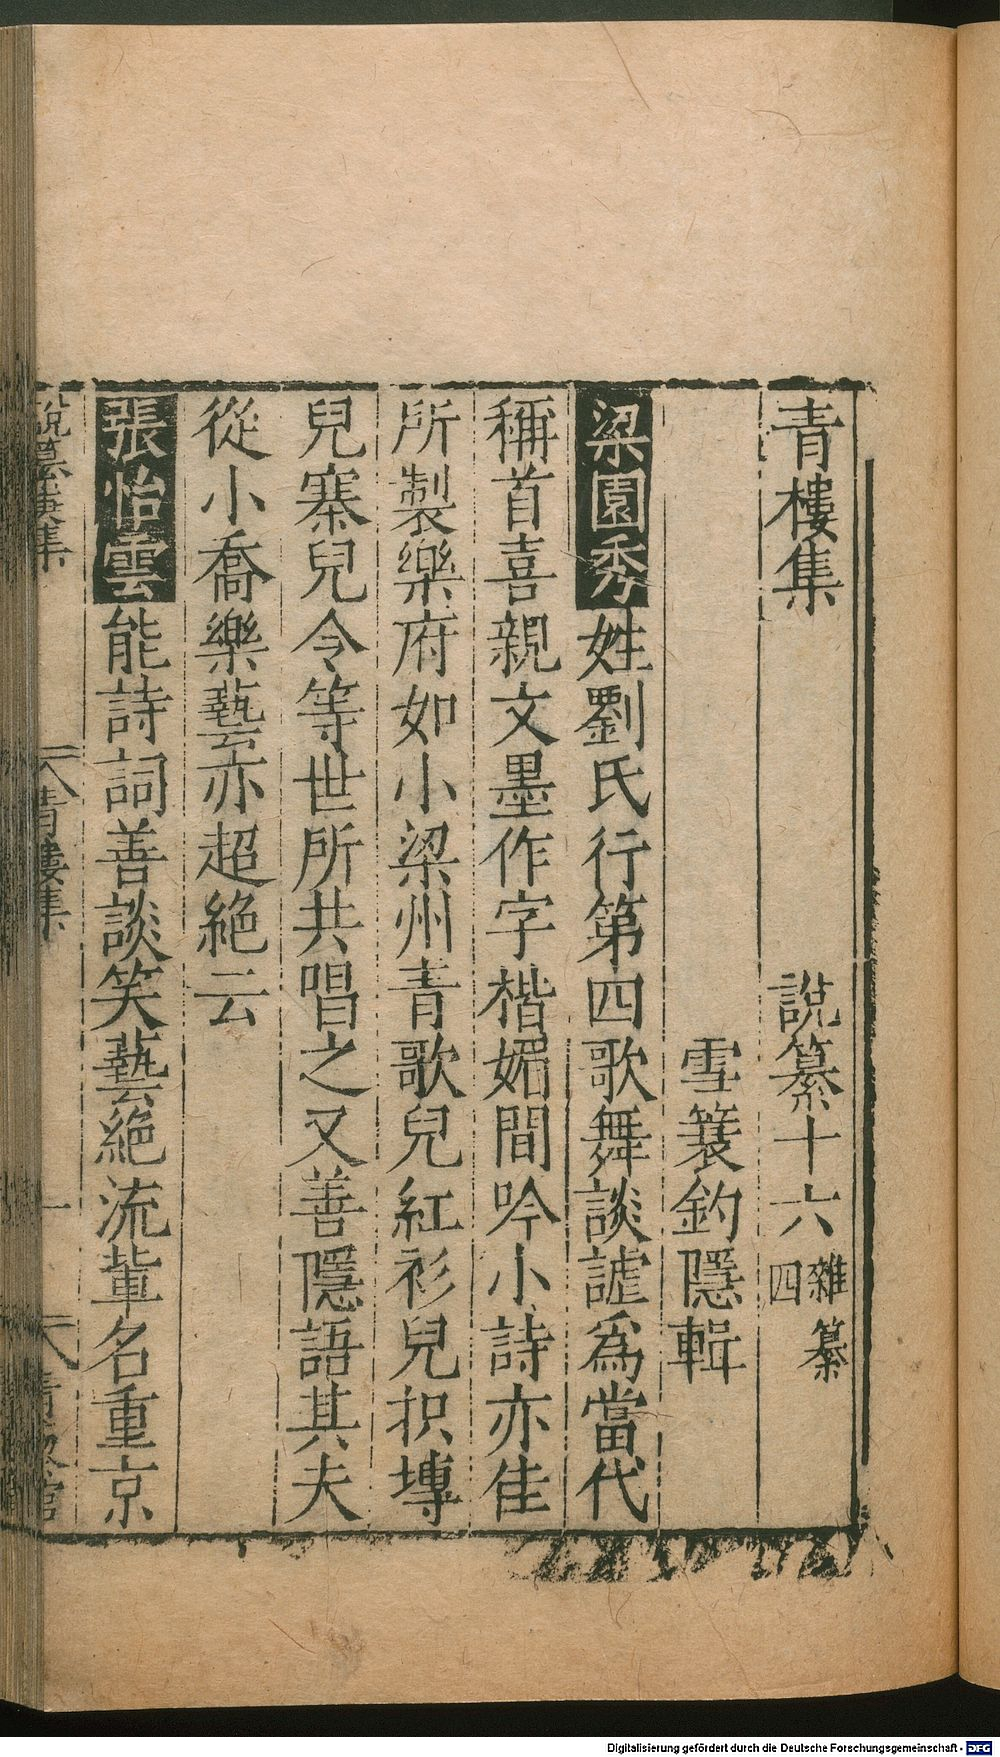 青樓集 說纂十六 雜纂四
雪簑釣隱輯
梁園秀姓劉氏行第四歌舞談謔為當代
稱首喜親文墨作字楷媚間吟小詩亦佳
所製樂府如小梁州青歌兒紅衫兒抧塼
兒寨兒令等世所共唱之又善隱語其夫
從小喬樂藝亦超絕云
張怡雲能詩詞善談笑藝絕流輩名重京
青樓集 一
Digitalisierung gefördert durch die Deutsche Forschungsgemeinschaft - DFG